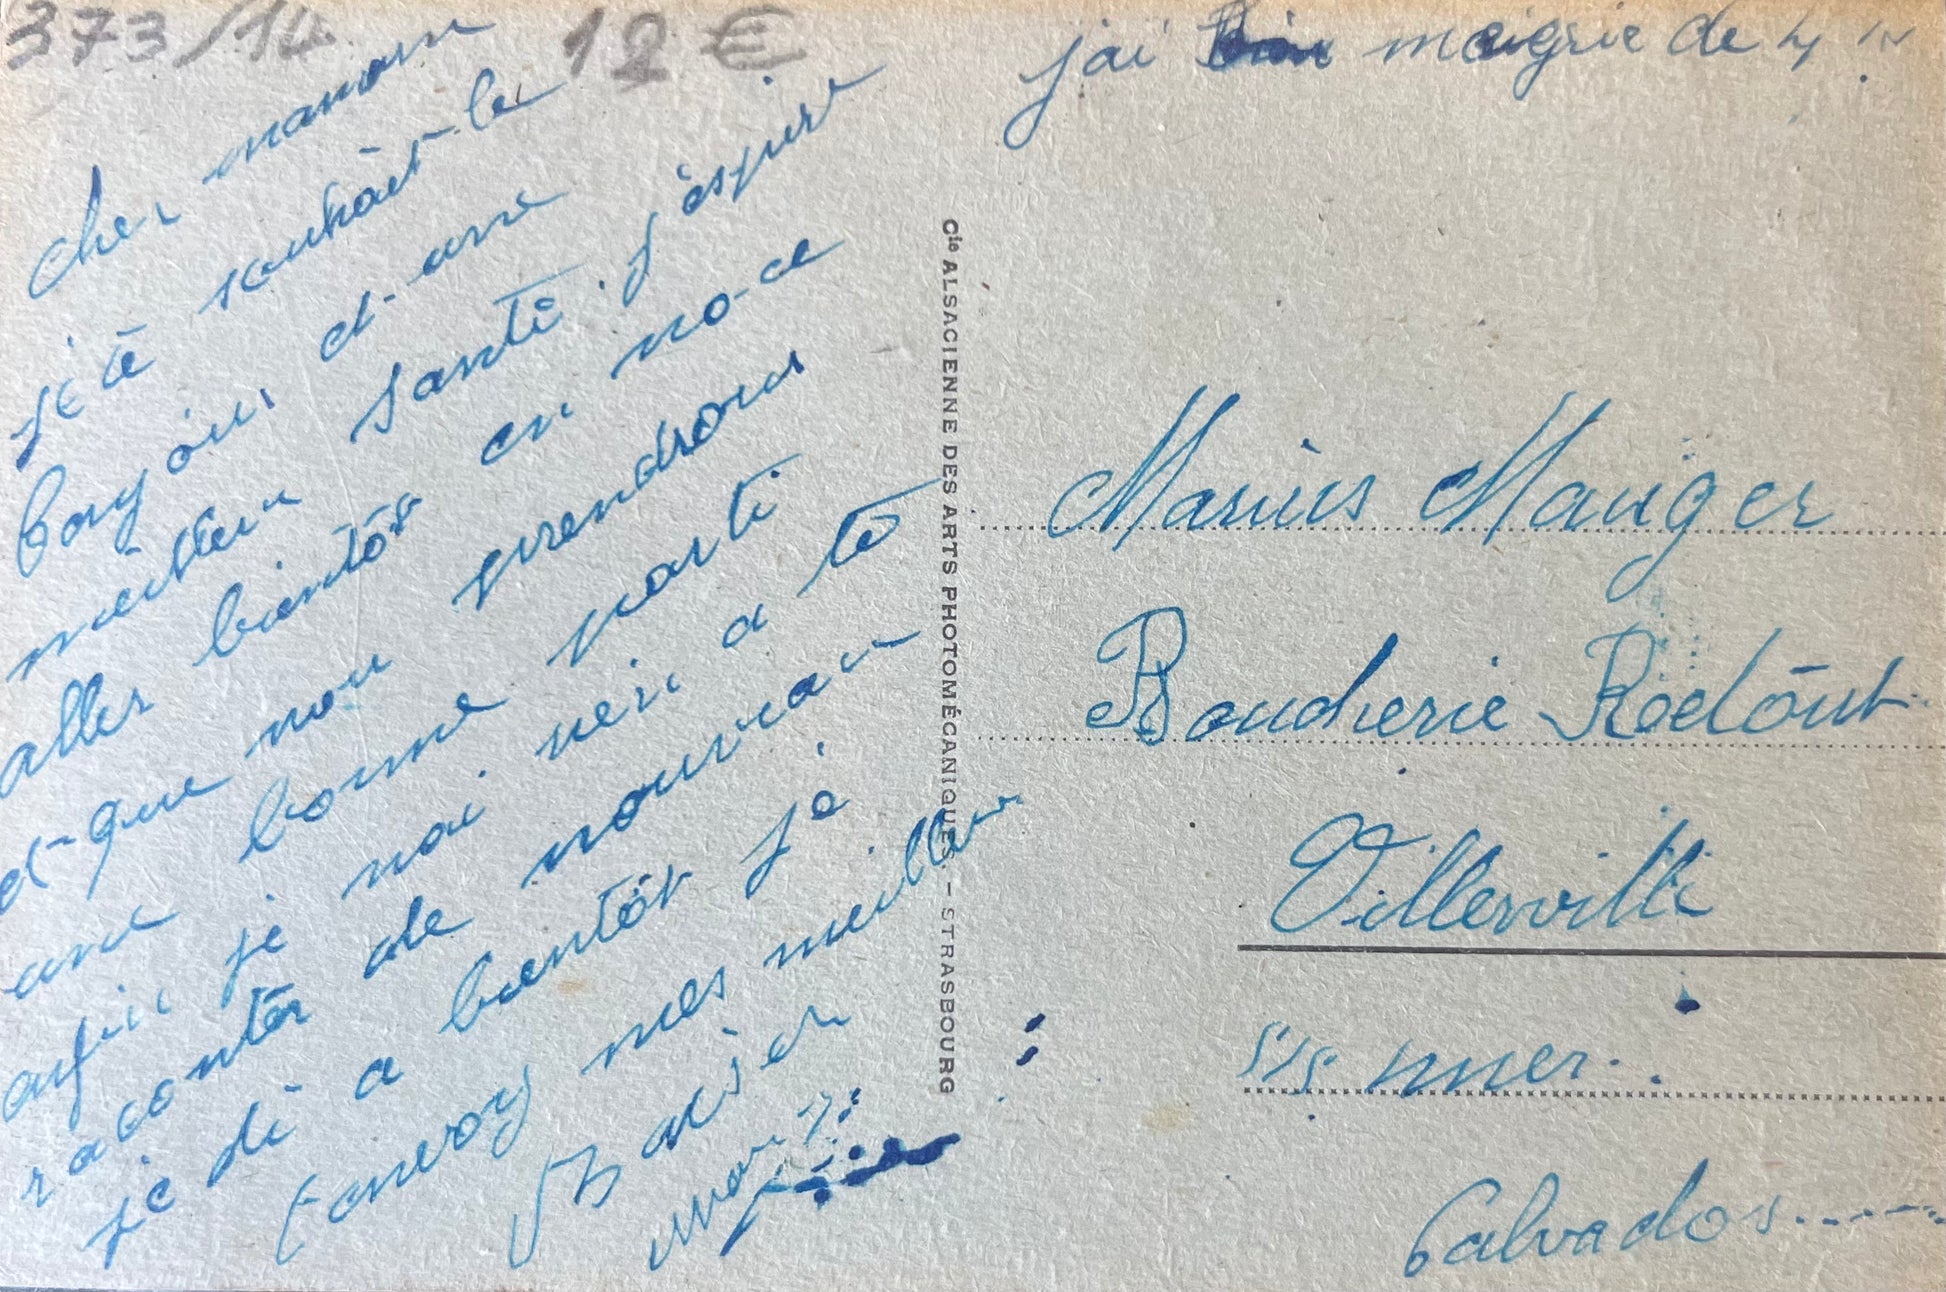 373/14 12 €
Cher maman
je tè souhait le
bonj our et une
meilleur santè. j èspere
aller bientôt en no-ce
et que nou prendrons
une bonne parti
enfin je nai rien a tè
raconter de nouveau
je dì a bientôt je
t'envoy mes meilleur
Baisèr
jai maigrie de 4
Cie ALSACIENNE DES ARTS PHOTOMÉCANIQUES. – STRASBOURG
Marius Mauger
Boucherie Redout
Villerville
s/s mer.
Calvados